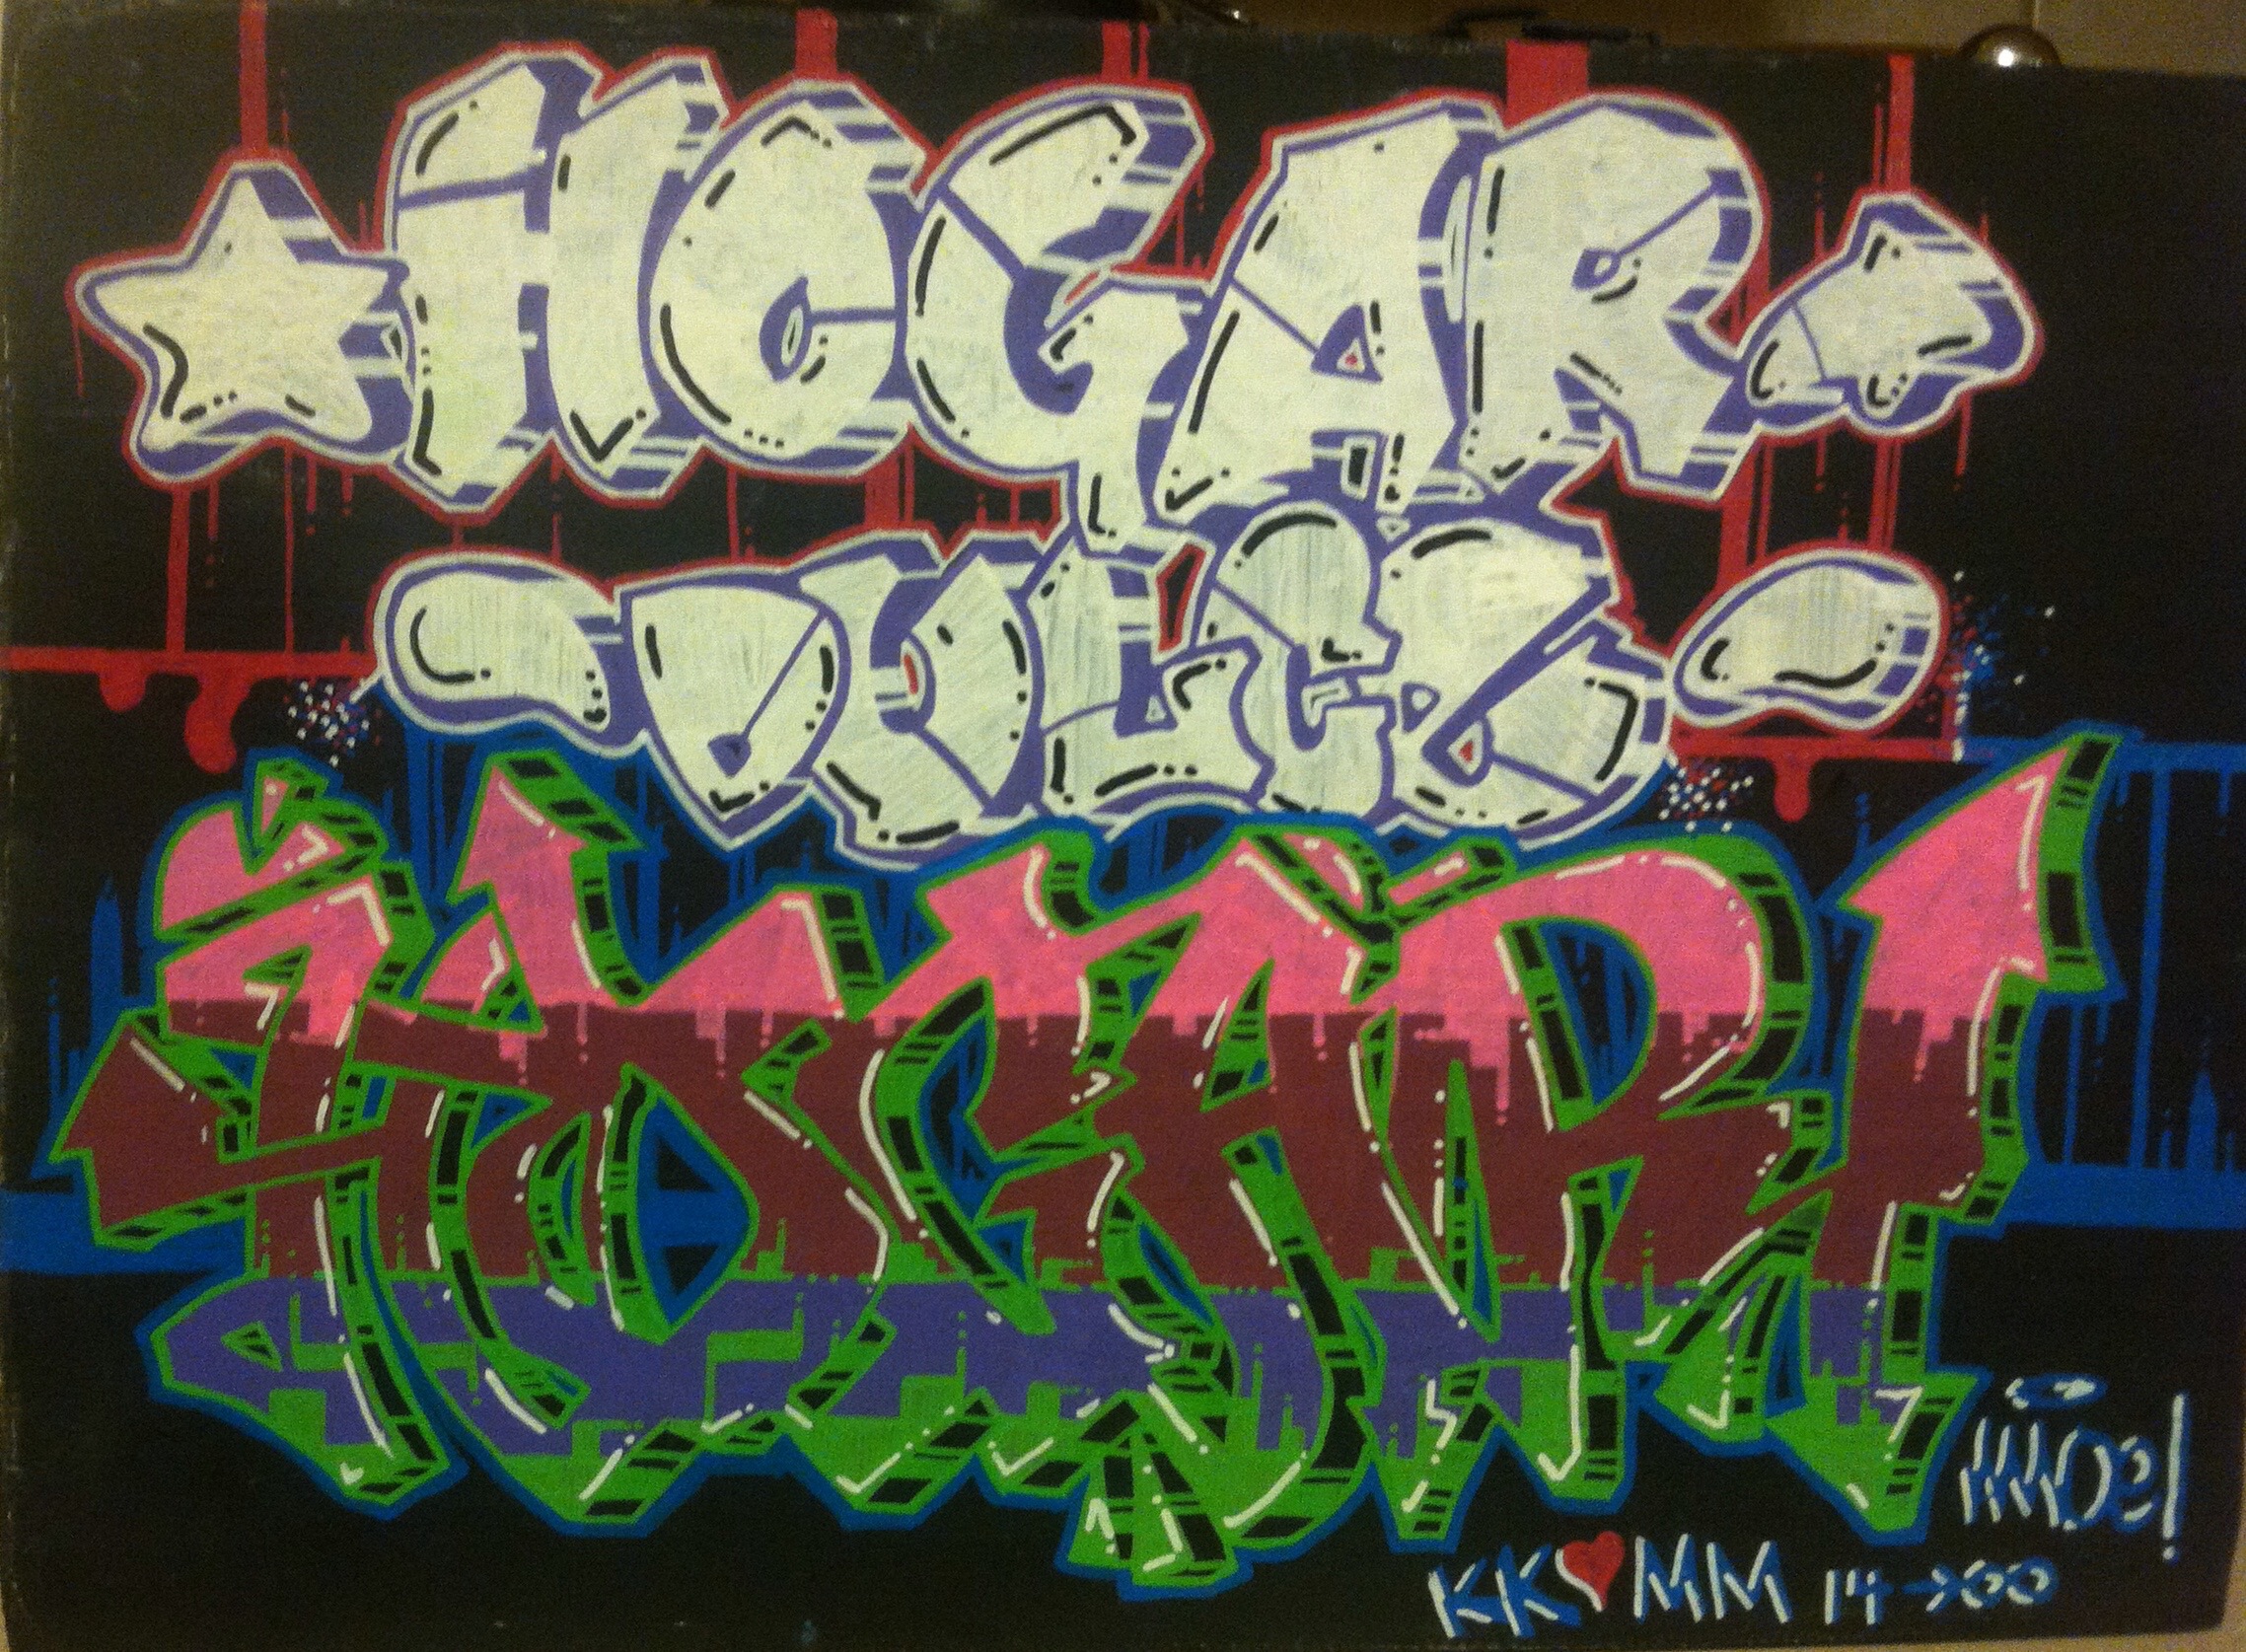 HOGAR
DULCE
HOGAR!
KK♥MM 14→∞